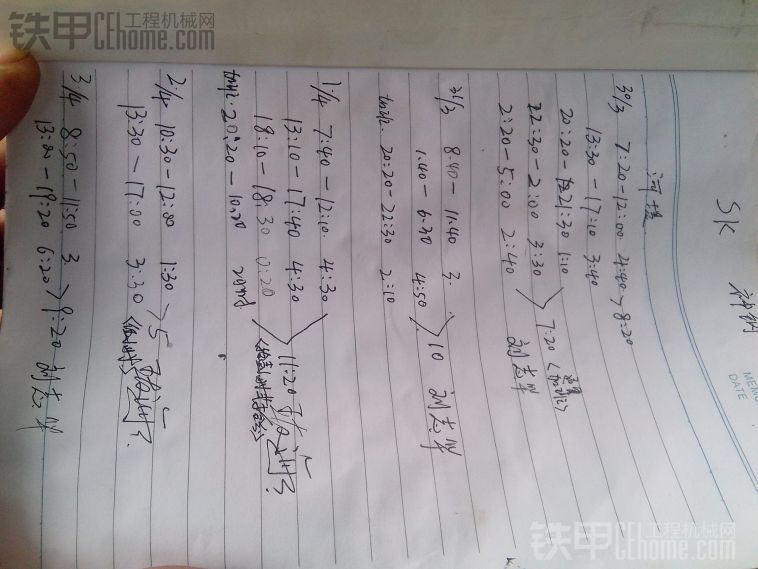 铁甲工程机械网
CEhome.com
MEMO
DATE
神钢
SK
河堤
30/3 7:20-12:00 4:40 > 8:20
13:30-17:10 3:40
20:20-21:30 1:10
22:30-2:00 3:30 > 7:20
2:20-5:00 2:40 刘志军
31/3 8:40-11:40 3.
1:40-6:30 4:50 > 10 刘志军
加班. 20:20-22:30 2:10
1/4 7:40-12:10. 4:30
13:10-17:40 4:30 > 11:20
18:10-18:30 0:20
加班. 20:20-10:20 2
2/4 10:30-12:00 1:30 > 5
13:30-17:00 3:30
3/4 8:50-11:50 3. > 9:20 刘志军
13:00-19:20 6:20
铁甲工程机械网
CEhome.com